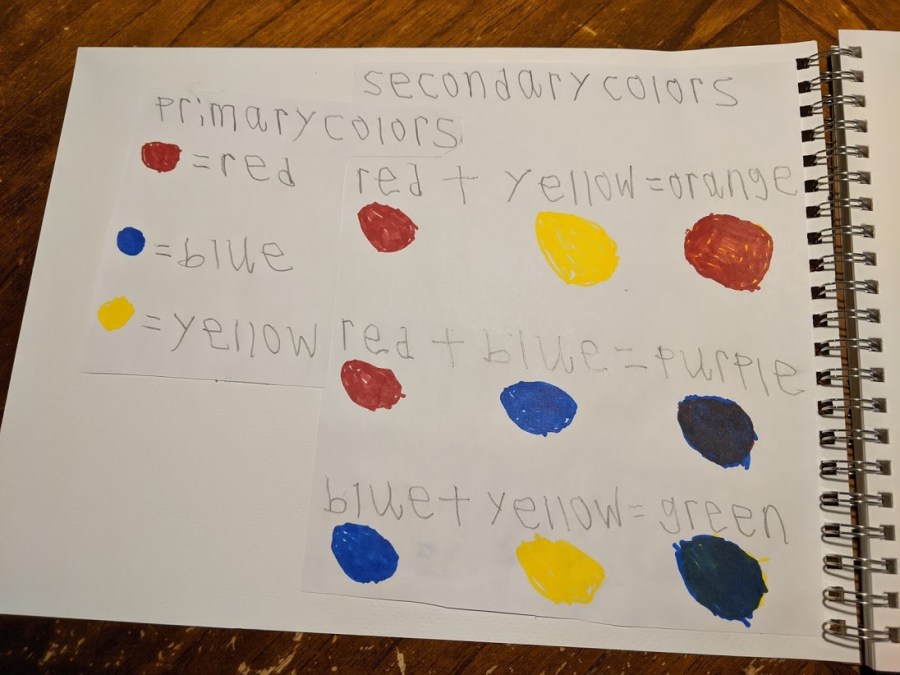 primary colors
=red
=blue
=yellow
secondary colors
red + yellow=orange
red + blue=purple
blue+ yellow=green